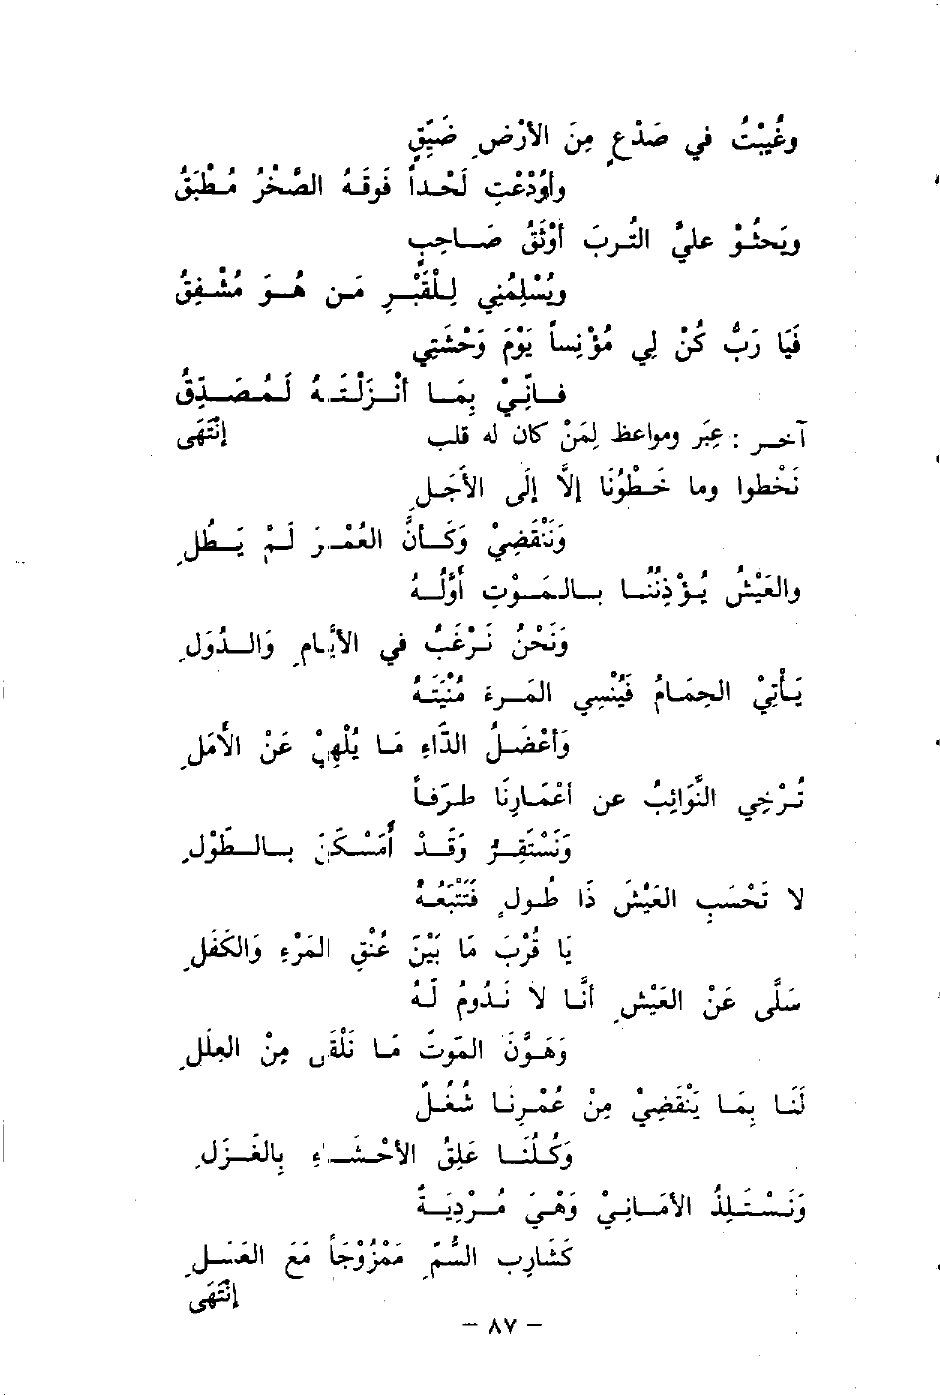 وغُيِّبْتُ في صَدْعٍ مِنَ الأرْضِ ضَيِّقٍ
وأُوْدِعْتِ لَحْداً فَوقَهُ الصَّخْرُ مُطْبَقُ
ويَحثُوْ عليَّ التُربَ أوْثَقُ صَاحِبٍ
ويُسْلِمُني لِلْقَبْرِ مَن هُوَ مُشْفِقُ
فَيَا رَبُّ كُنْ لِي مُؤْنِساً يَوْمَ وَحْشَتِي
فَانِّيْ بِمَا أنْزَلْتَهُ لَمُصَدِّقُ
انْتَهَى
آخر : عِبَر ومواعظ لِمَنْ كان له قلب
نَخْطوا وما خَطْوُنَا إلاَّ إلَى الأجَلِ
وَنَنْقَضِيْ وَكَأنَّ العُمْرَ لَمْ يَطُلِ
والعَيْشُ يُؤْذِنُنَا بالمَوْتِ أوَّلُهُ
وَنَحْنُ نَرْغَبُ في الأيَّامِ وَالدُوَلِ
يَأتِيْ الحِمَامُ فَيُنْسِي المَرءَ مُنْيَتَهُ
وَأعْضَلُ الدَّاءِ مَا يُلْهِيْ عَنْ الأَمَلِ
تُرْخِي النَّوَائِبُ عن أعْمَارِنَا طرَفاً
وَنَسْتَقِرُ وَقَدْ أمْسَكَنَ بالطَوْلِ
لا تَحْسَبِ العَيْشَ ذَا طُولٍ فَتَتْبَعَهُ
يَا قُرْبَ مَا بَيْنَ عُنْقِ المَرْءِ وَالكَفَلِ
سَلَّى عَنْ العَيْشِ أنَّا لا نَدُومُ لَهُ
وَهَوَّنَ المَوتَ مَا نَلْقَى مِنْ العِلَلِ
لَنَا بِمَا يَنْقَضِيْ مِنْ عُمْرِنا شُغُلٌ
وَكُلُنَا عَلِقُ الأحْشَاءِ بِالغَزَلِ
وَنَسْتَلِذُ الأمَانِيْ وَهْيَ مُرْدِيَةً
كَشَارِبِ السُّمِّ مَمْزُوْجَاً مَعَ العَسَلِ
انْتَهَى
– ٨٧ –